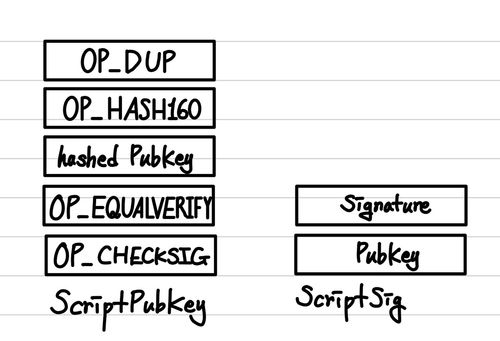 OP_DUP
OP_HASH160
hashed PubKey
OP_EQUALVERIFY
OP_CHECKSIG
ScriptPubKey
Signature
PubKey
ScriptSig